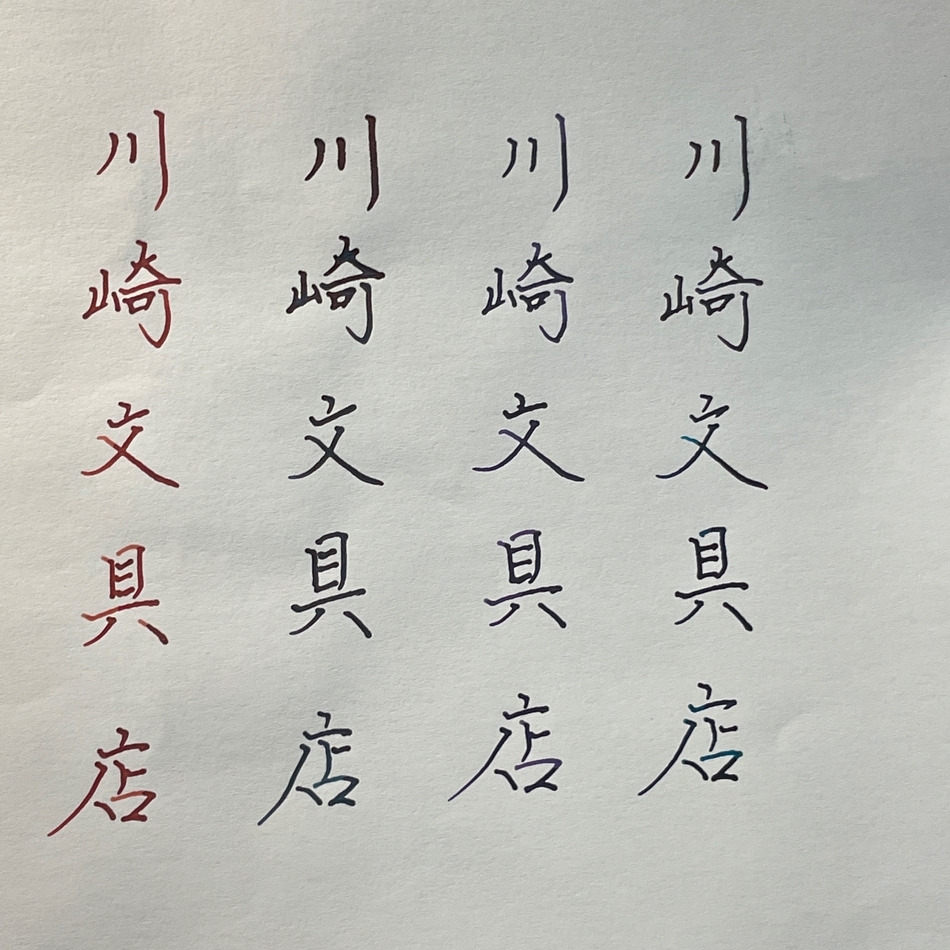 川崎文具店
川崎文具店
川崎文具店
川崎文具店